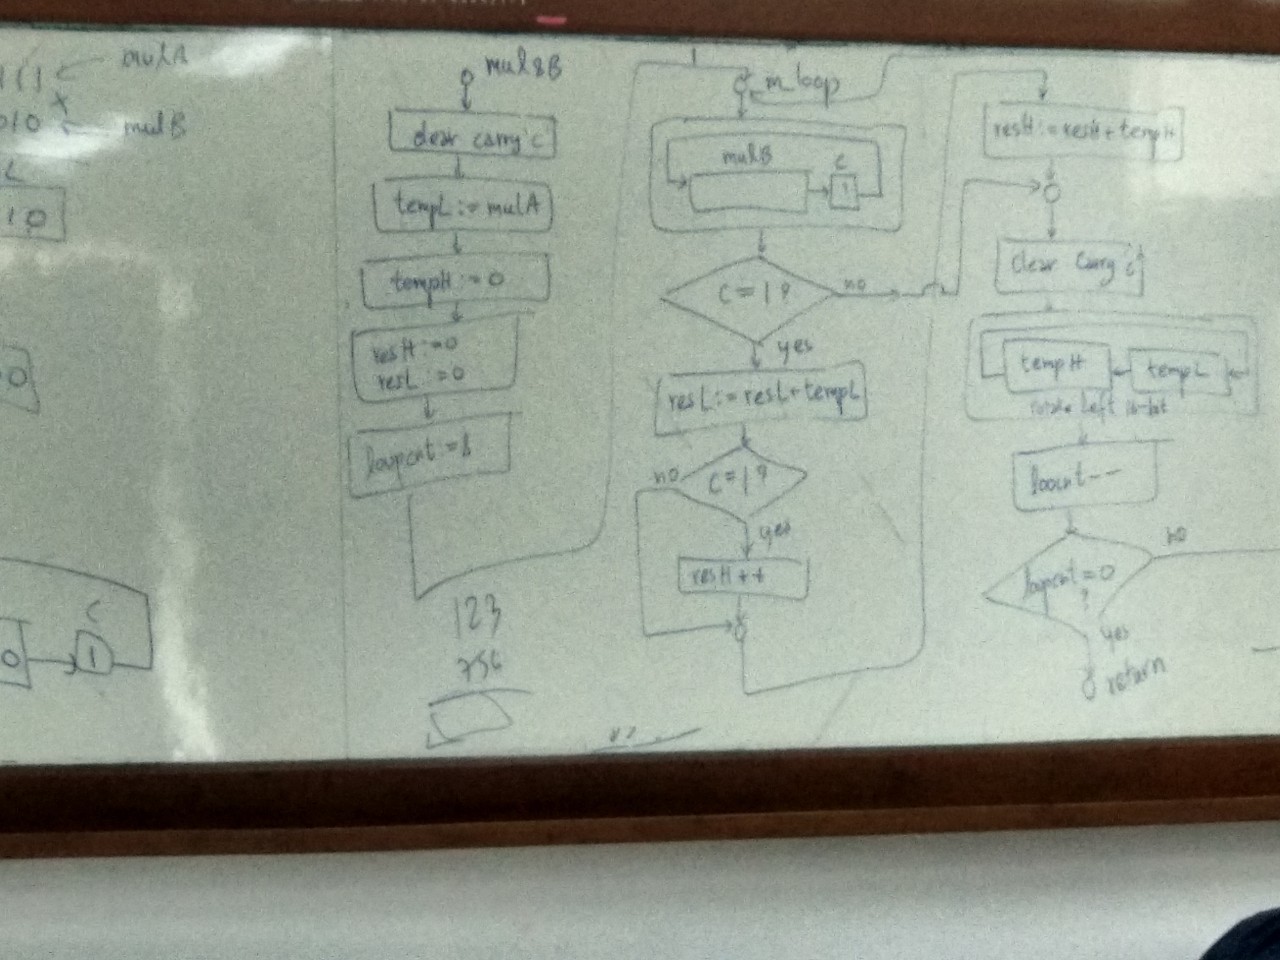 mulA
111
x
010
mulB
L
10
0
C
0
1
mul8B
clear carry 'c'
tempL := mulA
tempH := 0
resH := 0
resL := 0
loopcnt := 8
123
756
m_loop
mulB
C
1
C = 1 ?
no
yes
resL := resL + tempL
C = 1 ?
no
yes
resH ++
resH := resH + tempH
clear carry 'c'
tempH
tempL
rotate left 16-bit
loocnt --
loopcnt = 0
?
no
yes
return